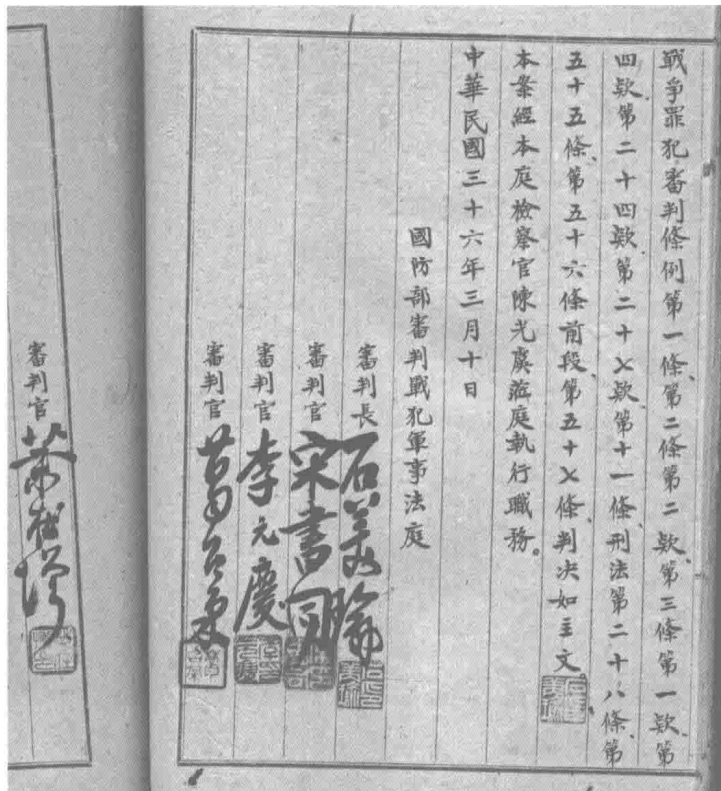 戰爭罪犯審判條例第一條、第二條第二款、第三條第一款、第
四款、第二十四款、第二十七款、第十一條、刑法第二十八條、第
五十五條、第五十六條前段、第五十七條、判決如主文。
本案經本庭檢察官陳光虞蒞庭執行職務。
中華民國三十六年三月十日
國防部審判戰犯軍事法庭
審判長 石美瑜
審判官 宋書同
審判官 李元慶
審判官 葛召棠
審判官 葉在增